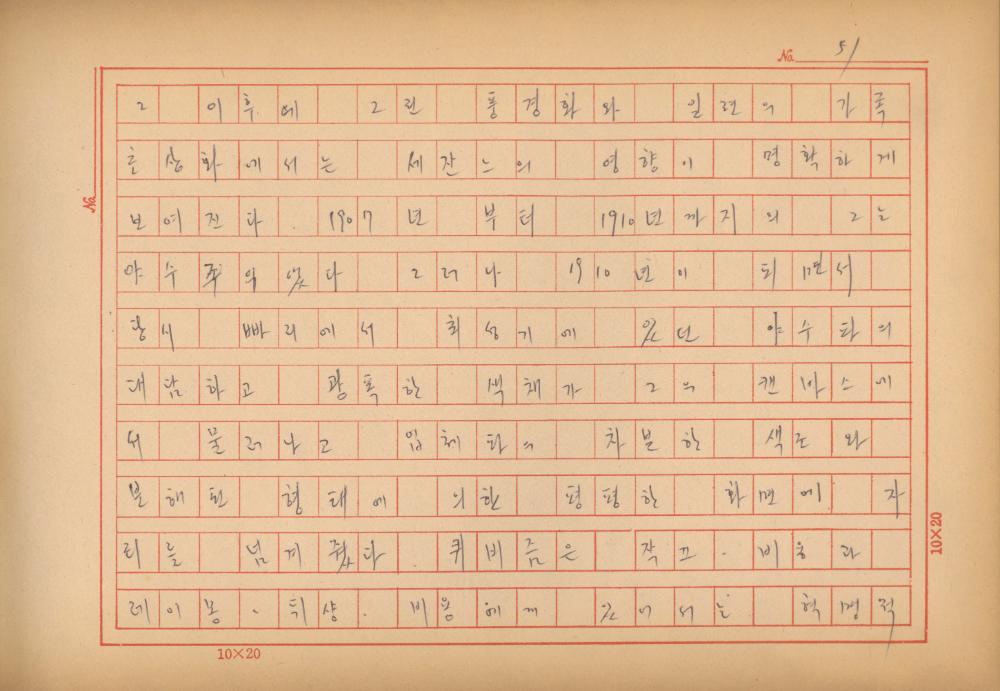 No. 51
그 이후에 그린 풍경화와 일련의 가족
초상화에서는 세잔느의 영향이 명확하게
보여진다. 1907년 부터 1910년까지의 그는
야수주의였다 그러나 1910년이 되면서
당시 빠리에서 최성기에 있던 야수파의
대담하고 광폭한 색채가 그의 캔바스에
서 물러나고 입체파의 차분한 색조와
분해된 형태에 의한 평평한 화면에 자
리를 넘겨줬다. 퀴비즘은 작끄·비용과
레이몽·뒤샹·비용에게 있어서는 혁명적
No.
10×20
10×20